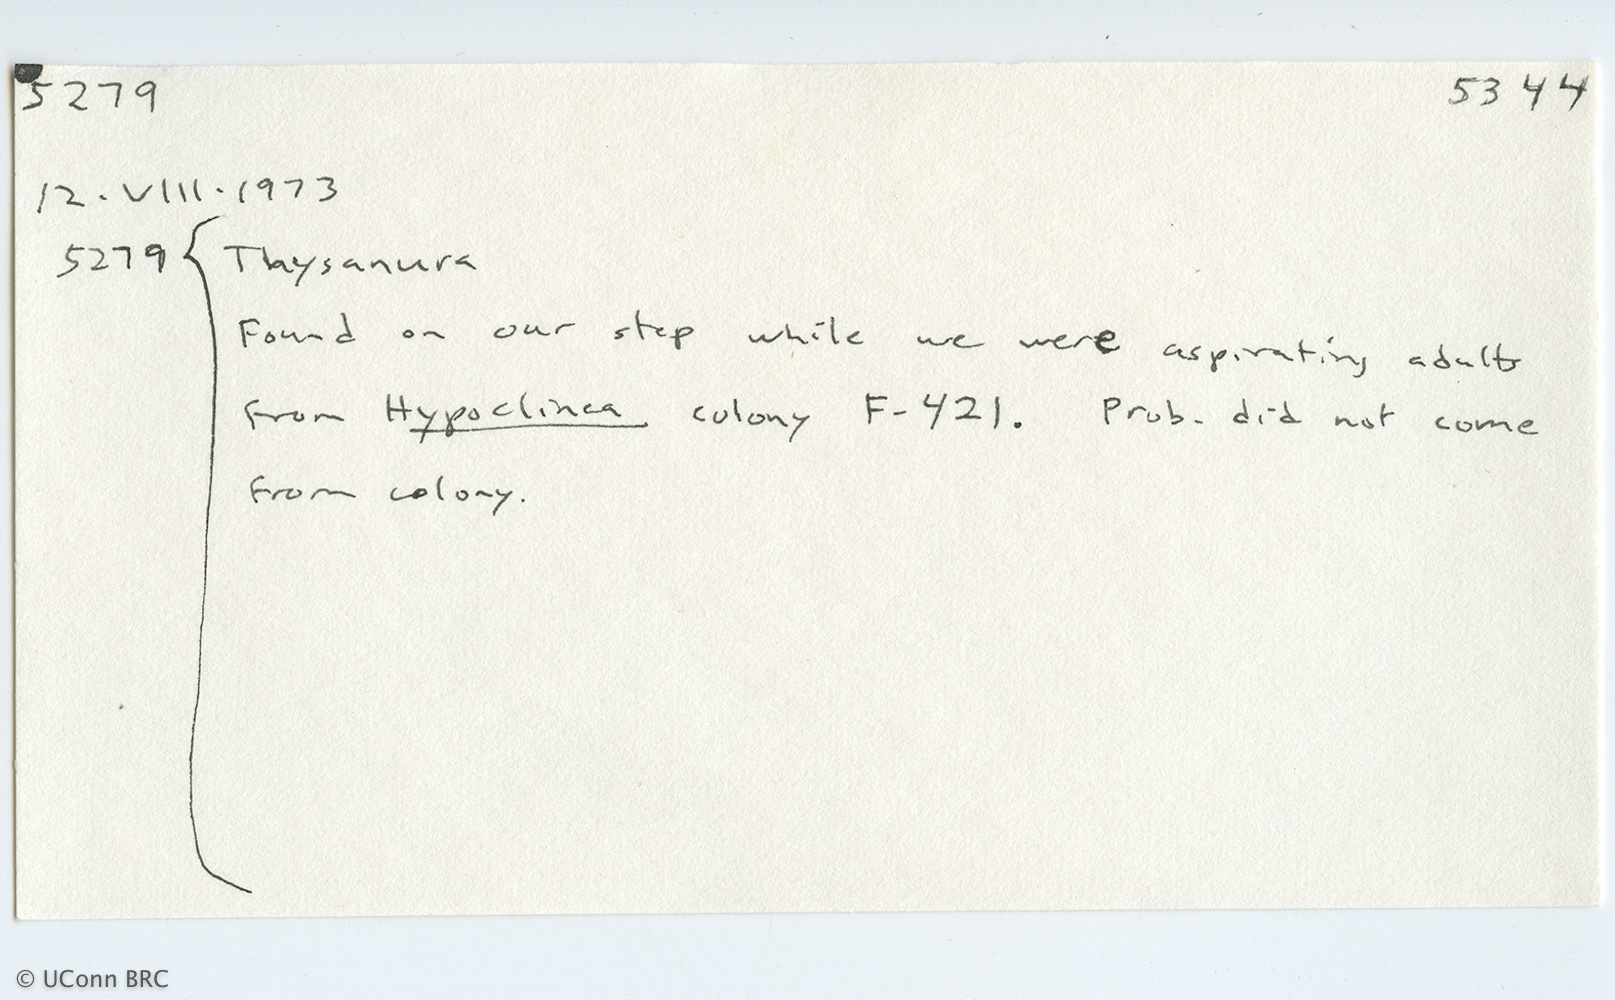 5279 5344
12.VIII.1973
5279 { Thysanura
Found on our step while we were aspirating adults
from Hypoclinea colony F-421. Prob. did not come
from colony.
© UConn BRC